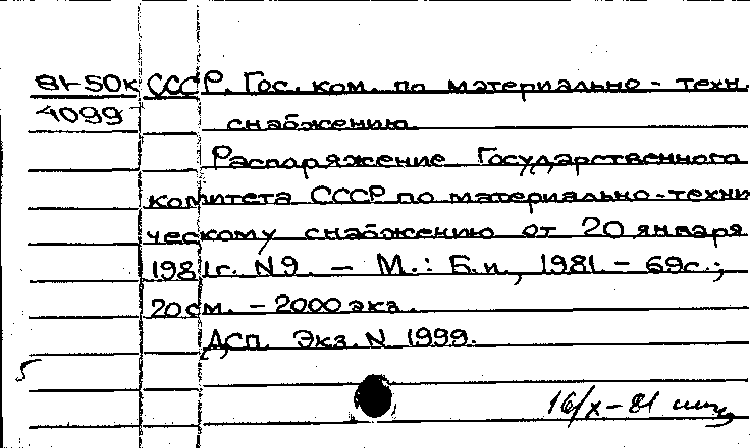 81-50к СССР. Гос. ком. по материально-техн.
4099 снабжению.
Распоряжение Государственного
комитета СССР по материально-техни
ческому снабжению от 20 января
1981г. N9. — М.: Б.и., 1981. — 69с.;
20см. — 2000 экз.
ДСП. Экз. N 1999.
16/X-81